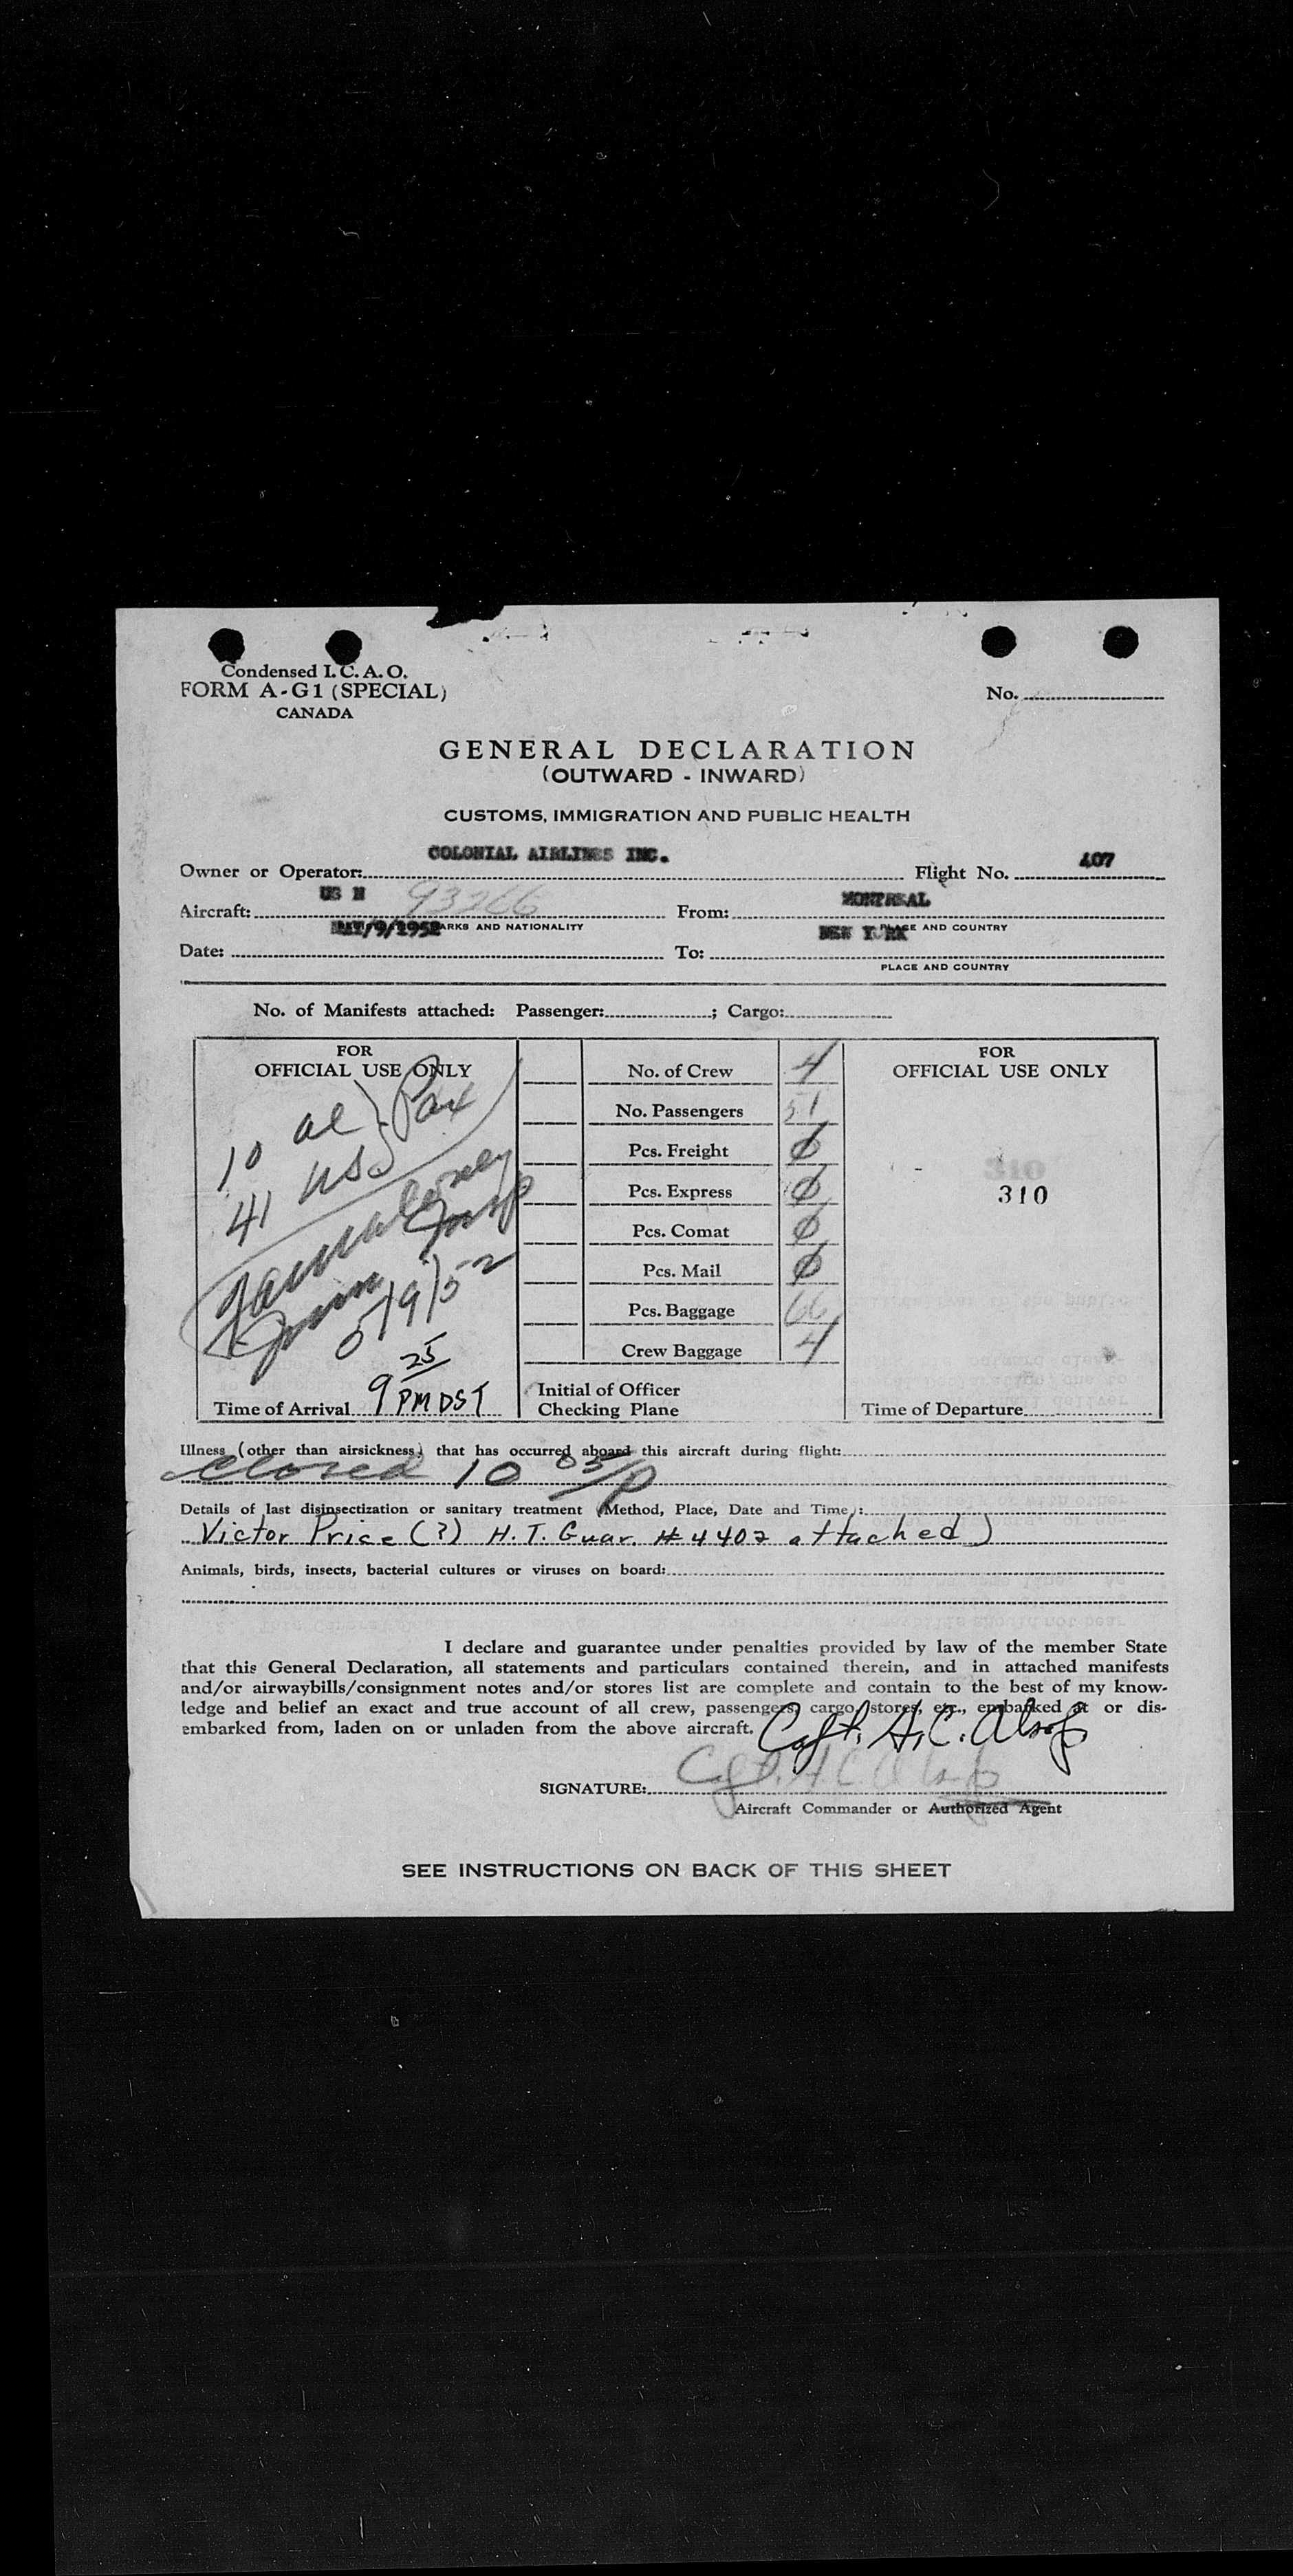 Condensed I. C. A. O.
FORM A-G1 (SPECIAL)
CANADA
No.
GENERAL DECLARATION
(OUTWARD - INWARD)
CUSTOMS, IMMIGRATION AND PUBLIC HEALTH
Owner or Operator: COLONIAL AIRLINES INC. Flight No. 407
Aircraft: US N 93266 From: MONTREAL
MARKS AND NATIONALITY PLACE AND COUNTRY
Date: MAY/9/1952 To: NEW YORK
PLACE AND COUNTRY
No. of Manifests attached: Passenger: ; Cargo:
FOR
OFFICIAL USE ONLY
10 al } Pax
41 USC
Imm Insp
5/9/52
Time of Arrival 9 25 PM DST
No. of Crew 4
No. Passengers 51
Pcs. Freight Ø
Pcs. Express Ø
Pcs. Comat Ø
Pcs. Mail Ø
Pcs. Baggage 66
Crew Baggage 4
Initial of Officer
Checking Plane
FOR
OFFICIAL USE ONLY
310
310
Time of Departure
Illness (other than airsickness) that has occurred aboard this aircraft during flight:
Closed 10 05/P
Details of last disinsectization or sanitary treatment (Method, Place, Date and Time):
Victor Price (?) H. T. Guar. # 4402 attached)
Animals, birds, insects, bacterial cultures or viruses on board:
I declare and guarantee under penalties provided by law of the member State
that this General Declaration, all statements and particulars contained therein, and in attached manifests
and/or airwaybills/consignment notes and/or stores list are complete and contain to the best of my know-
ledge and belief an exact and true account of all crew, passengers, cargo, stores, etc., embarked at or dis-
embarked from, laden on or unladen from the above aircraft.
Capt. A. C. Alsop
SIGNATURE: Capt. A C Alsop
Aircraft Commander or Authorized Agent
SEE INSTRUCTIONS ON BACK OF THIS SHEET